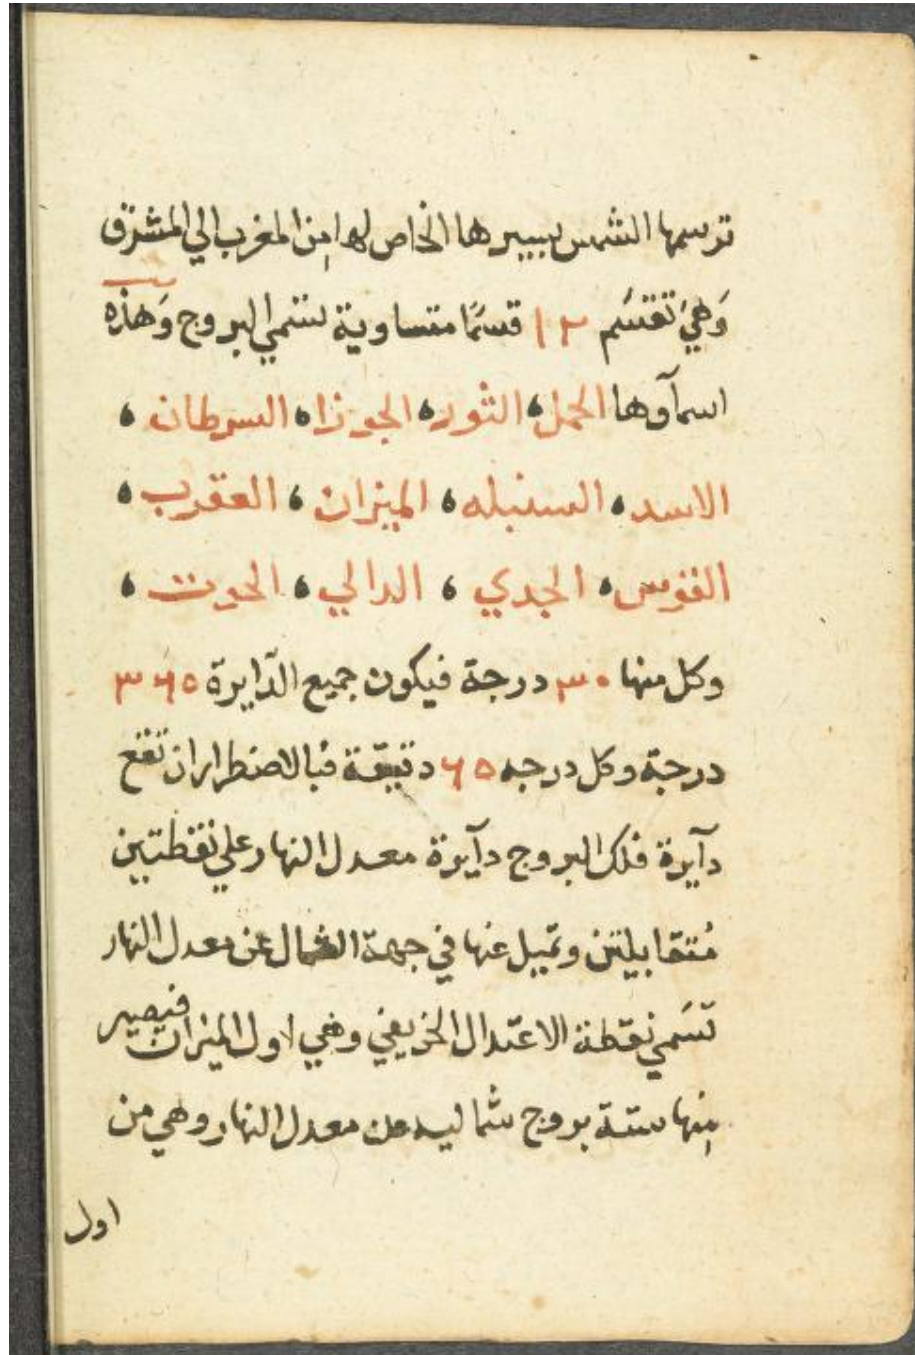 ترسمها الشمس بسيرها الخاص لها من المغرب الي المشرق
وَهيَ تقتسَم ١٢ قسمًا متساوية تسمي البروج وَهذه
اسمآوها الحمل، الثور، الجوزا، السرطان،
الاسد، السنبله، الميزان، العقرب،
القوس، الجدي، الدالي، الحوت،
وكل منها ٣٠ درجة فيكون جميع الدّايرة ٣٦٥
درجة وكل درجه ٦٥ دقيقة فبالاضطرار ان تقع
دآيرة فلك البروج دآيرة معدل النهار علي نقطتين
مُتقابلتين وتميل عنها في جهة الشمال عن معدل النهار
تسَمي نقطة الاعتدال الخريفي وهي اول الميزان فيصير
منها ستة بروج شماليه عن معدل النهار وهي من
اول